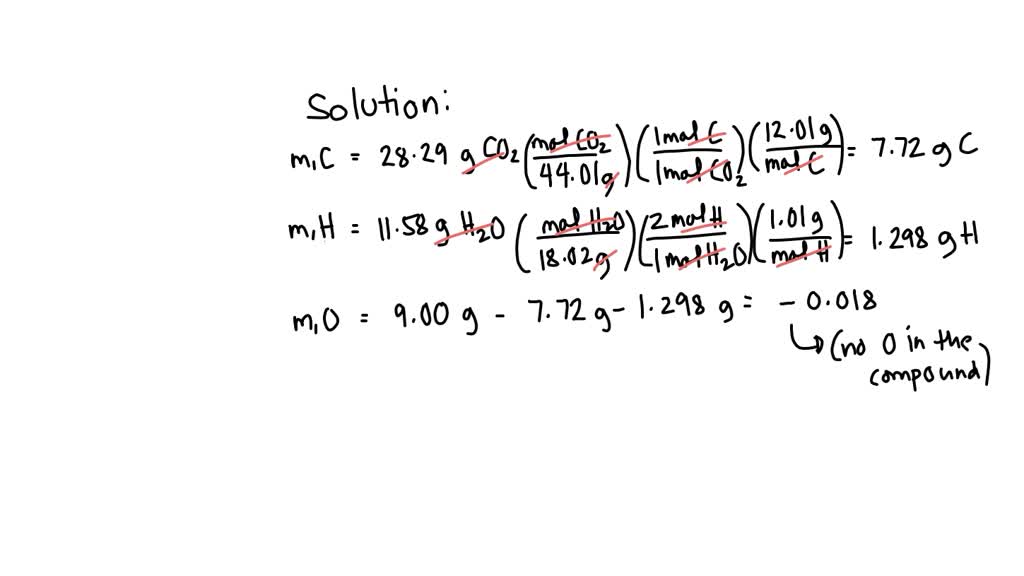 Solution:
m,C = 28.29 g CO₂ (mol CO₂/44.01g) (1mol C/1mol CO₂) (12.01g/mol C) = 7.72 g C
m,H = 11.58 g H₂O (mol H₂O/18.02g) (2 mol H/1mol H₂O) (1.01g/mol H) = 1.298 g H
m,O = 9.00 g - 7.72 g - 1.298 g = - 0.018
↳ (no O in the
compound)